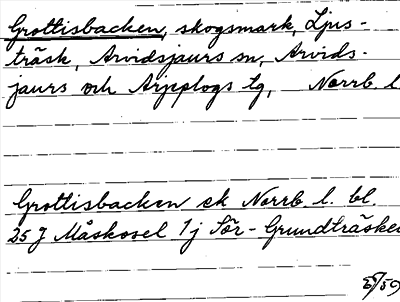 Grottisbacken, skogsmark, Ljus-
träsk, Arvidsjaurs sn, Arvids-
jaurs och Arjeplogs tg, Norrb. l
Grottisbacken ek Norrb. l. bl.
25 J Måskosel 1 j Sör-Grundträsket
/59